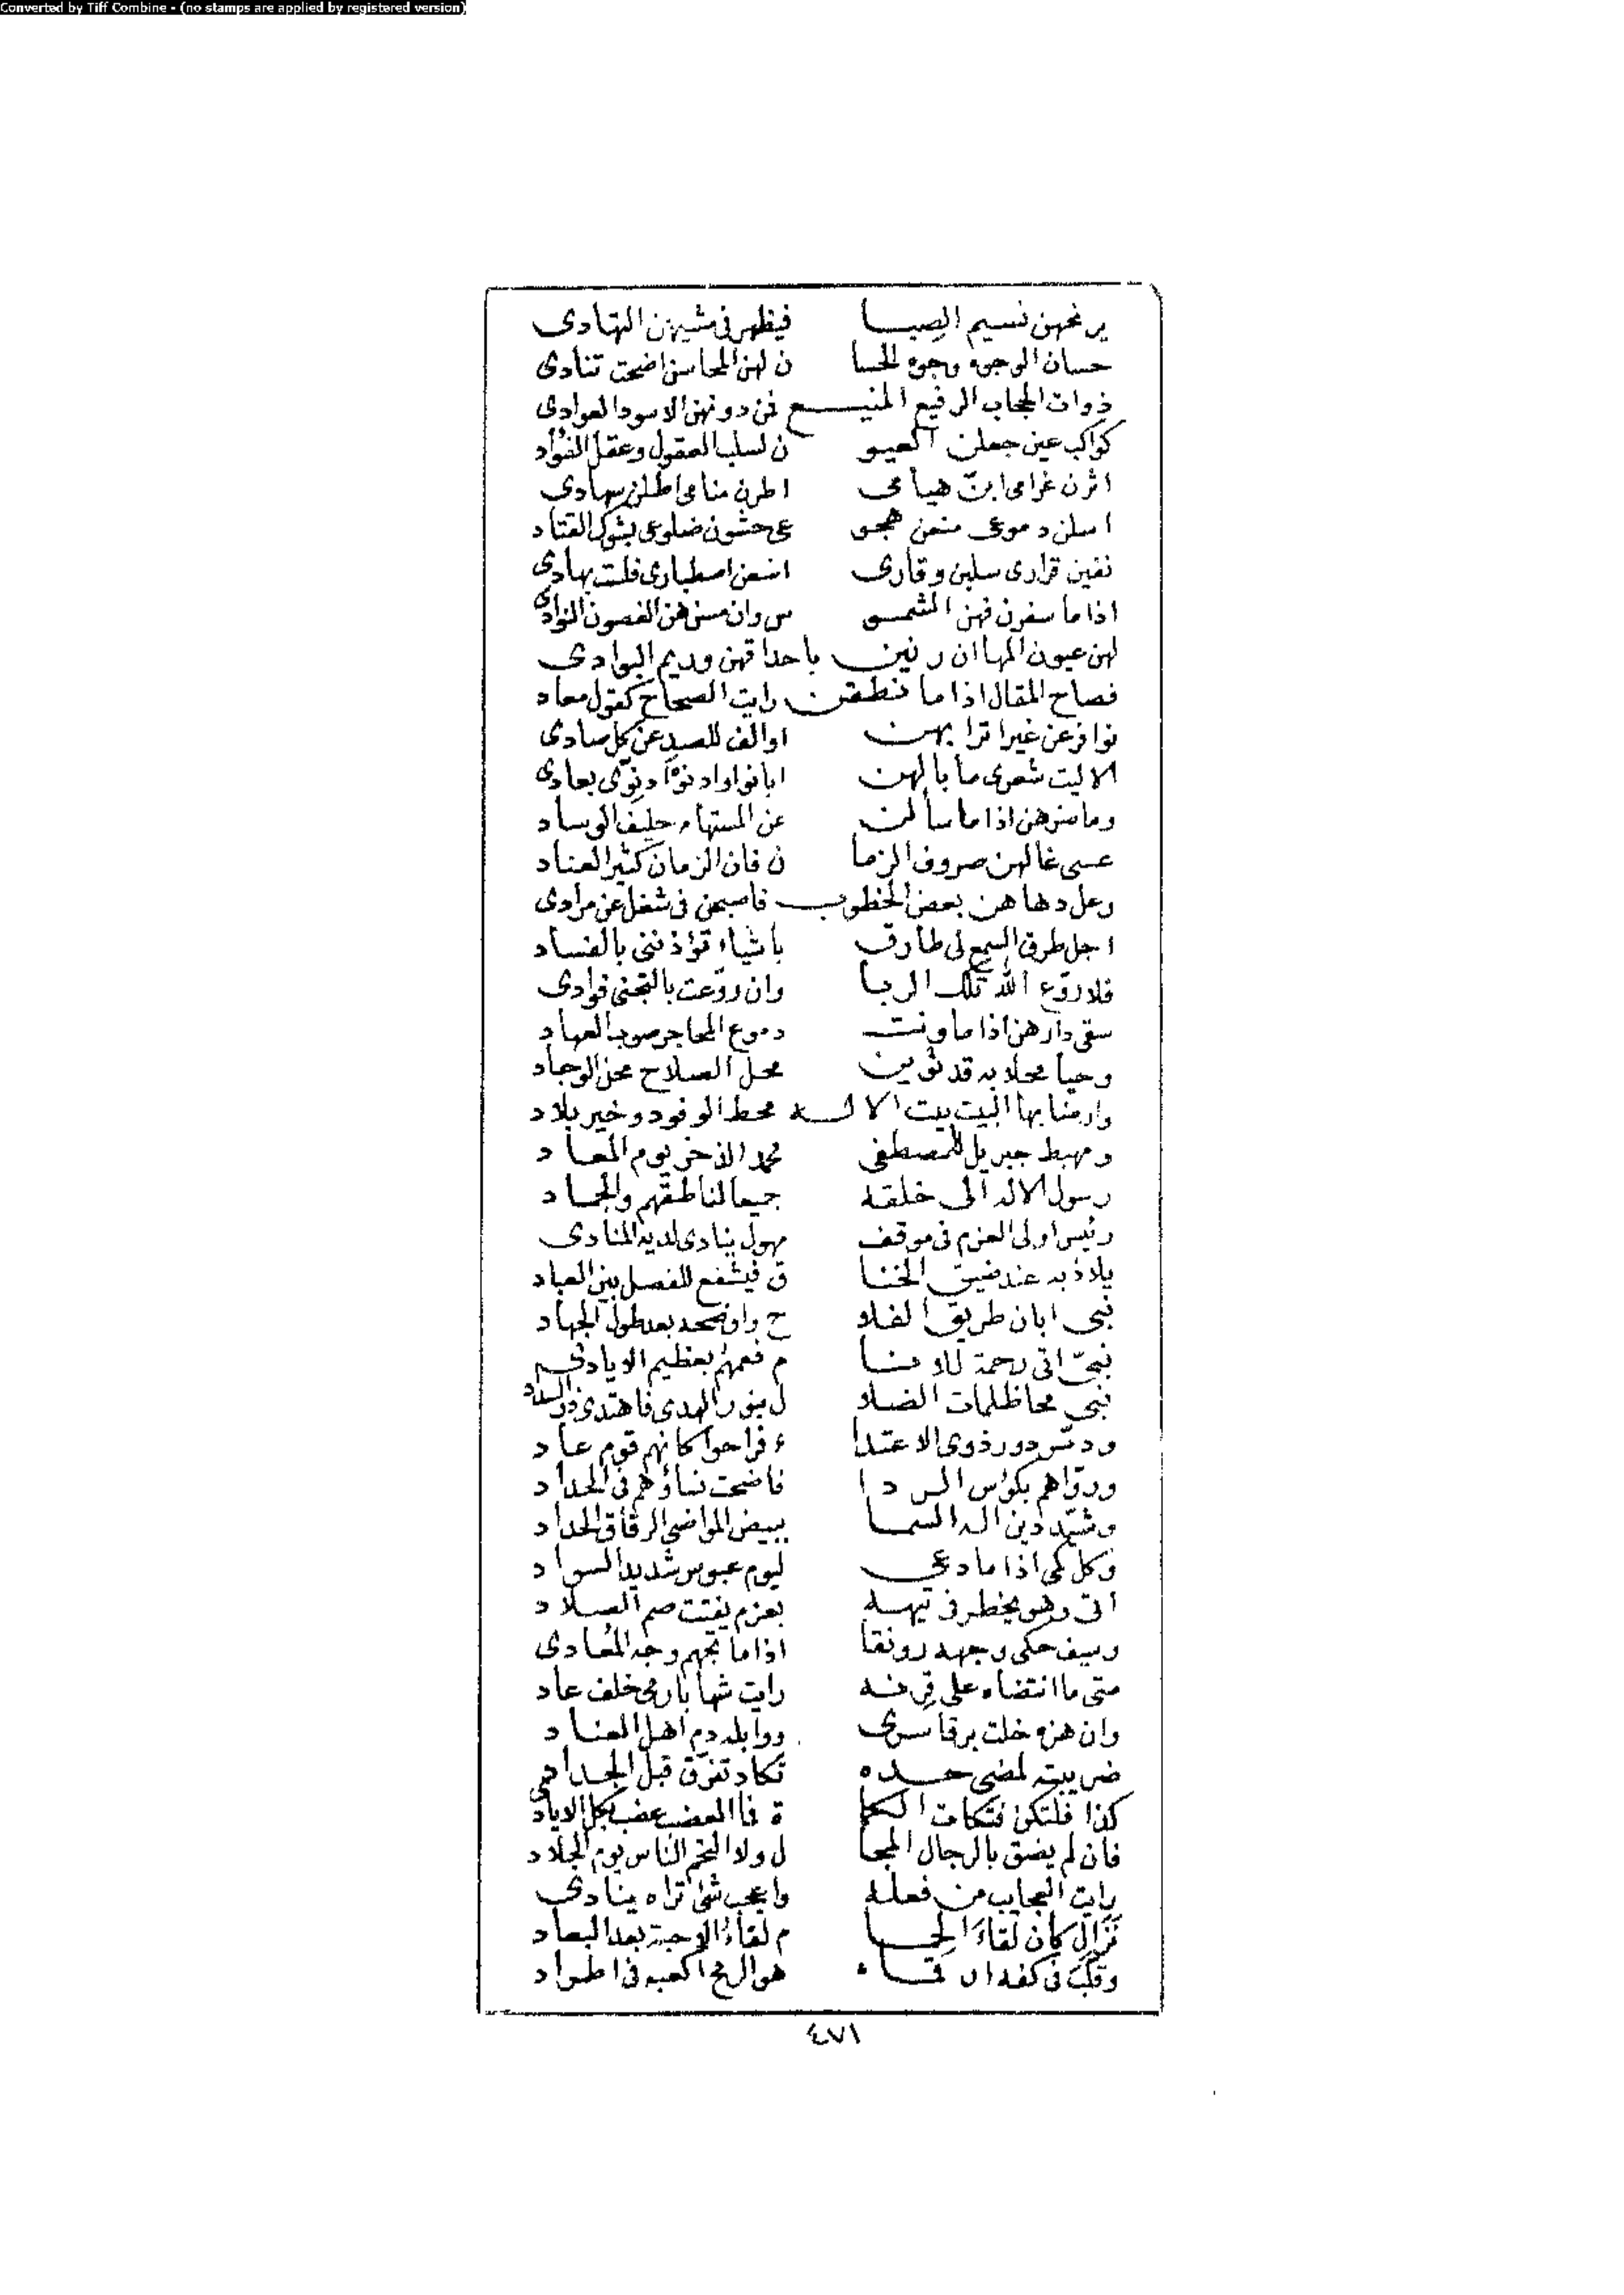 Converted by Tiff Combine - (no stamps are applied by registered version)
يرنحهن نسيم الصبا فيظهر فى مشيهن التهادى
حسان الوجوه وجوه الحسا ن لهن المحاسن اضحت تنادى
ذوات الحجاب الرفيع المنيع فمن دونهن الاسود العوادى
كواكب عين جعلن العيو ن لسلب العقول وعقل الفؤاد
اثرن غرامى ابنّ هيامى اطرن منامى اطلن سهادى
اسلن دموعى منعن هجو عى حشون ضلوعى بشوك القتاد
نفين قرارى سلبن وقارى اضعن اصطبارى فلست بهادى
اذا ما سفرن فهن الشمو س وان مسن هن الغصون النوادى
لهن عيون المها ان رنين باحداقهن وريم البوادى
فصاح المقال اذا ما نطقن رايت الصحاح كقول معاد
نوافر عن غير اترابهن اوالف للصيد عن كل صادى
الا ليت شعرى ما بالهن ابانوا وادنوا دنوّى بعادى
وما ضرهن اذا ما سألن عن المستهام حليف الوساد
عسى غالهن صروف الزما ن فان الزمان كثير العناد
وعل دهاهن بعض الخطوب فاصبحن فى شغل عن مرادى
اجل طرق السمع لى طارق باشياء تؤذننى بالفساد
فلا روّع الله تلك الربا وان روّعت بالتجنى فوادى
سقى دارهن اذا ما ونت دموع المحاجر صوب العهاد
وحيا محلا به قد ثوين محل الصلاح محل الوجاد
وارضا بها البيت بيت الاله محط الوفود وخير بلاد
ومهبط جبريل للمصطفى محمد الذخر يوم المعاد
رسول الاله الى خلقه جميعا لناطقهم والجماد
رئيس اولى العزم فى موقف مهول ينادى لديه المنادى
يلاذ به عند ضيق الخنا ق فيشفع للفصل بين العباد
نبى ابان طريق الفلا ح واوضحه بعد طول الجهاد
نبىّ اتى رحمة للاونا م فعمهم بعظيم الايادى
نبى محا ظلمات الضلا ل بنور الهدى فاهتدى ذو السداد
ودمّر دور ذوى الاعتدا ء فراحوا كانهم قوم عاد
وروّاهم بكؤس الردا فاضحت نساؤهم فى الحداد
وشيّد دين اله السما ببيض المواضى الرقاق الحداد
وكل كمى اذا ما دعى ليوم عبوس شديد السواد
اتى وهو يخطر فى تيهه بعزم يفتت صم الصلاد
وسيف حكى وجهه رونقا اذا ما تجهم وجه المعادى
متى ما انتضاه على قرنه رايت شهابا رمى خلف عاد
وان هزه خلت برقا سرى ووابله دم اهل العناد
ضريبته لمضى حده تكاد تفرّق قبل الجداد
كذا فلتكن فتكات الكما ة فما العضب عضب بكل الاياد
فان لم يضق بالرجال المجا ل ولا التحم الناس يوم الجلاد
رايت العجايب من فعله واعجب شئ تراه ينادى
نزال كان لقاء الحما م لقاء الاحبة بعد البعاد
وقلب فى كفه ارقماء هو الرمح اكعبه فى اطراد
٤٧١